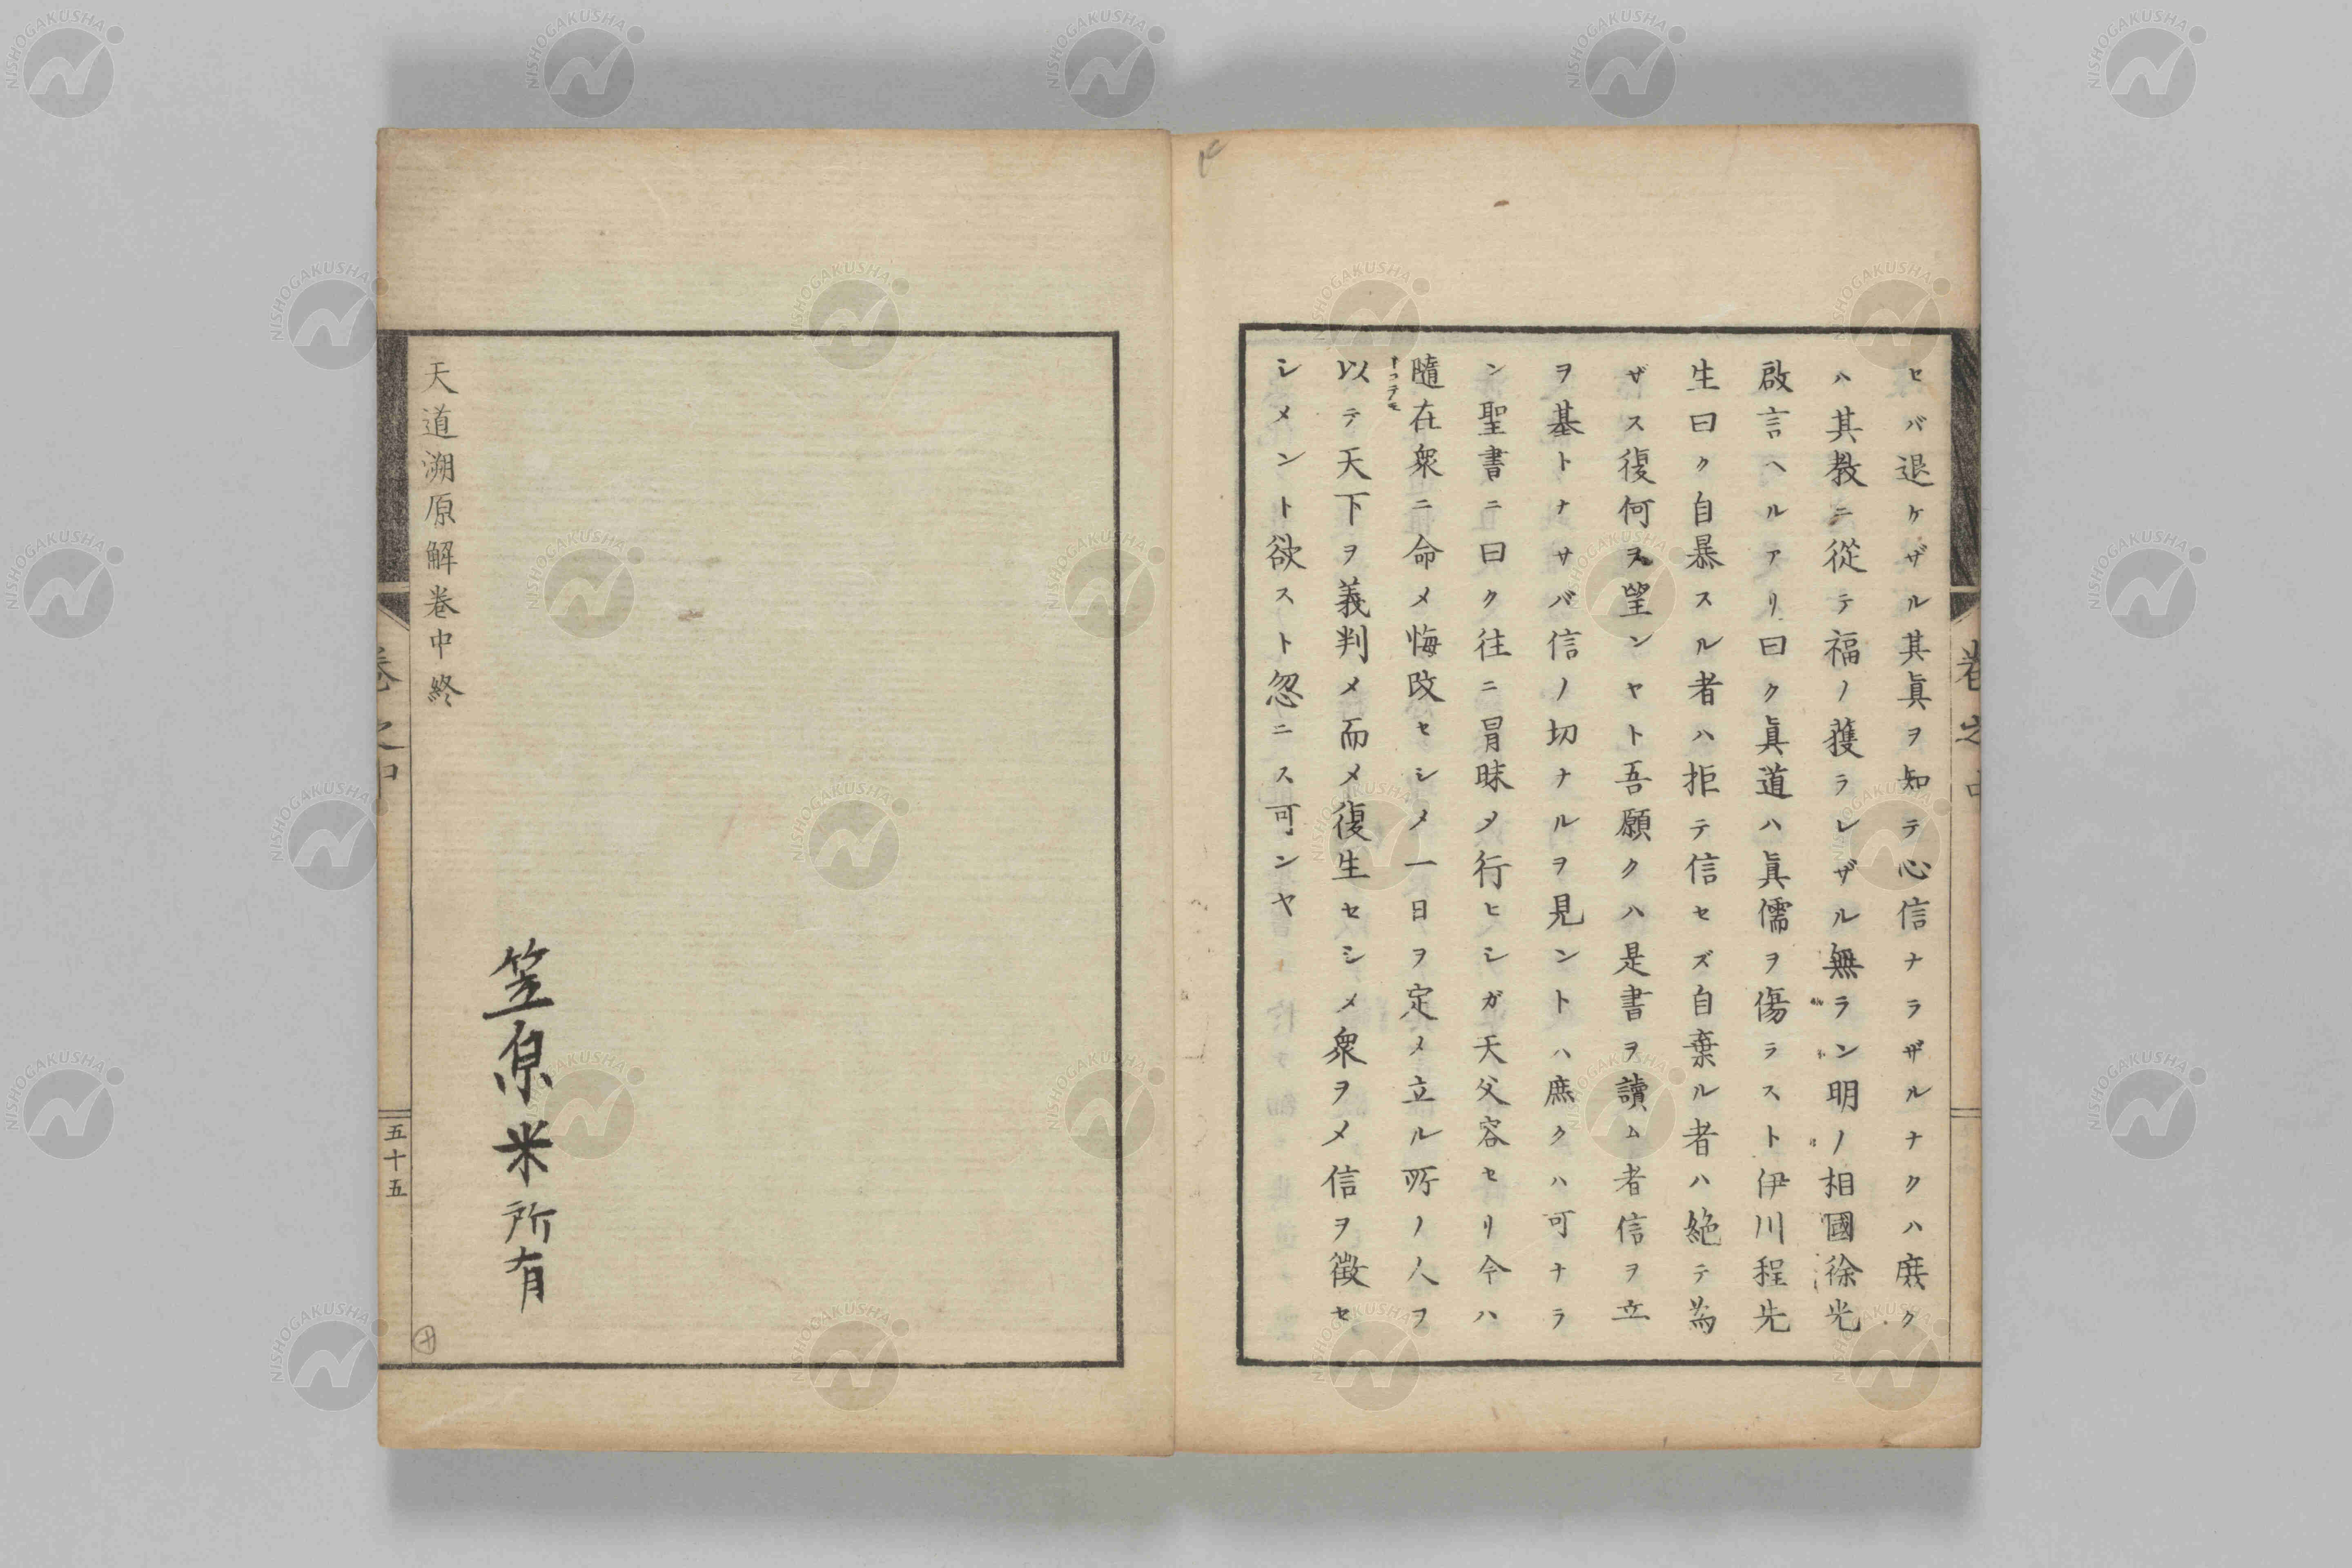 セバ退ケザル其眞ヲ知テ心信ナラザルナクハ庶ク
ハ其教ニ從テ福ノ獲ラレザル無ラン明ノ相國徐光
啟言ヘルアリ曰ク眞道ハ眞儒ヲ傷ラスト伊川程先
生曰ク自暴スル者ハ拒テ信セズ自棄ル者ハ絶テ為
ザス復何ヲ望ンヤト吾願クハ是書ヲ讀ム者信ヲ立
ヲ基トナサバ信ノ切ナルヲ見ントハ庶クハ可ナラ
ン聖書ニ曰ク往ニ冒昧メ行ヒシガ天父容セリ今ハ
隨在衆ニ命メ悔改セシメ一日ヲ定メ立ル所ノ人ヲ
以テ天下ヲ義判メ而メ復生セシメ衆ヲメ信ヲ徴セ
シメント欲スト忽ニス可ンヤ
卷之中
天道溯原解卷中終
笠原米所有
卷之中
五十五
NISHOGAKUSHA